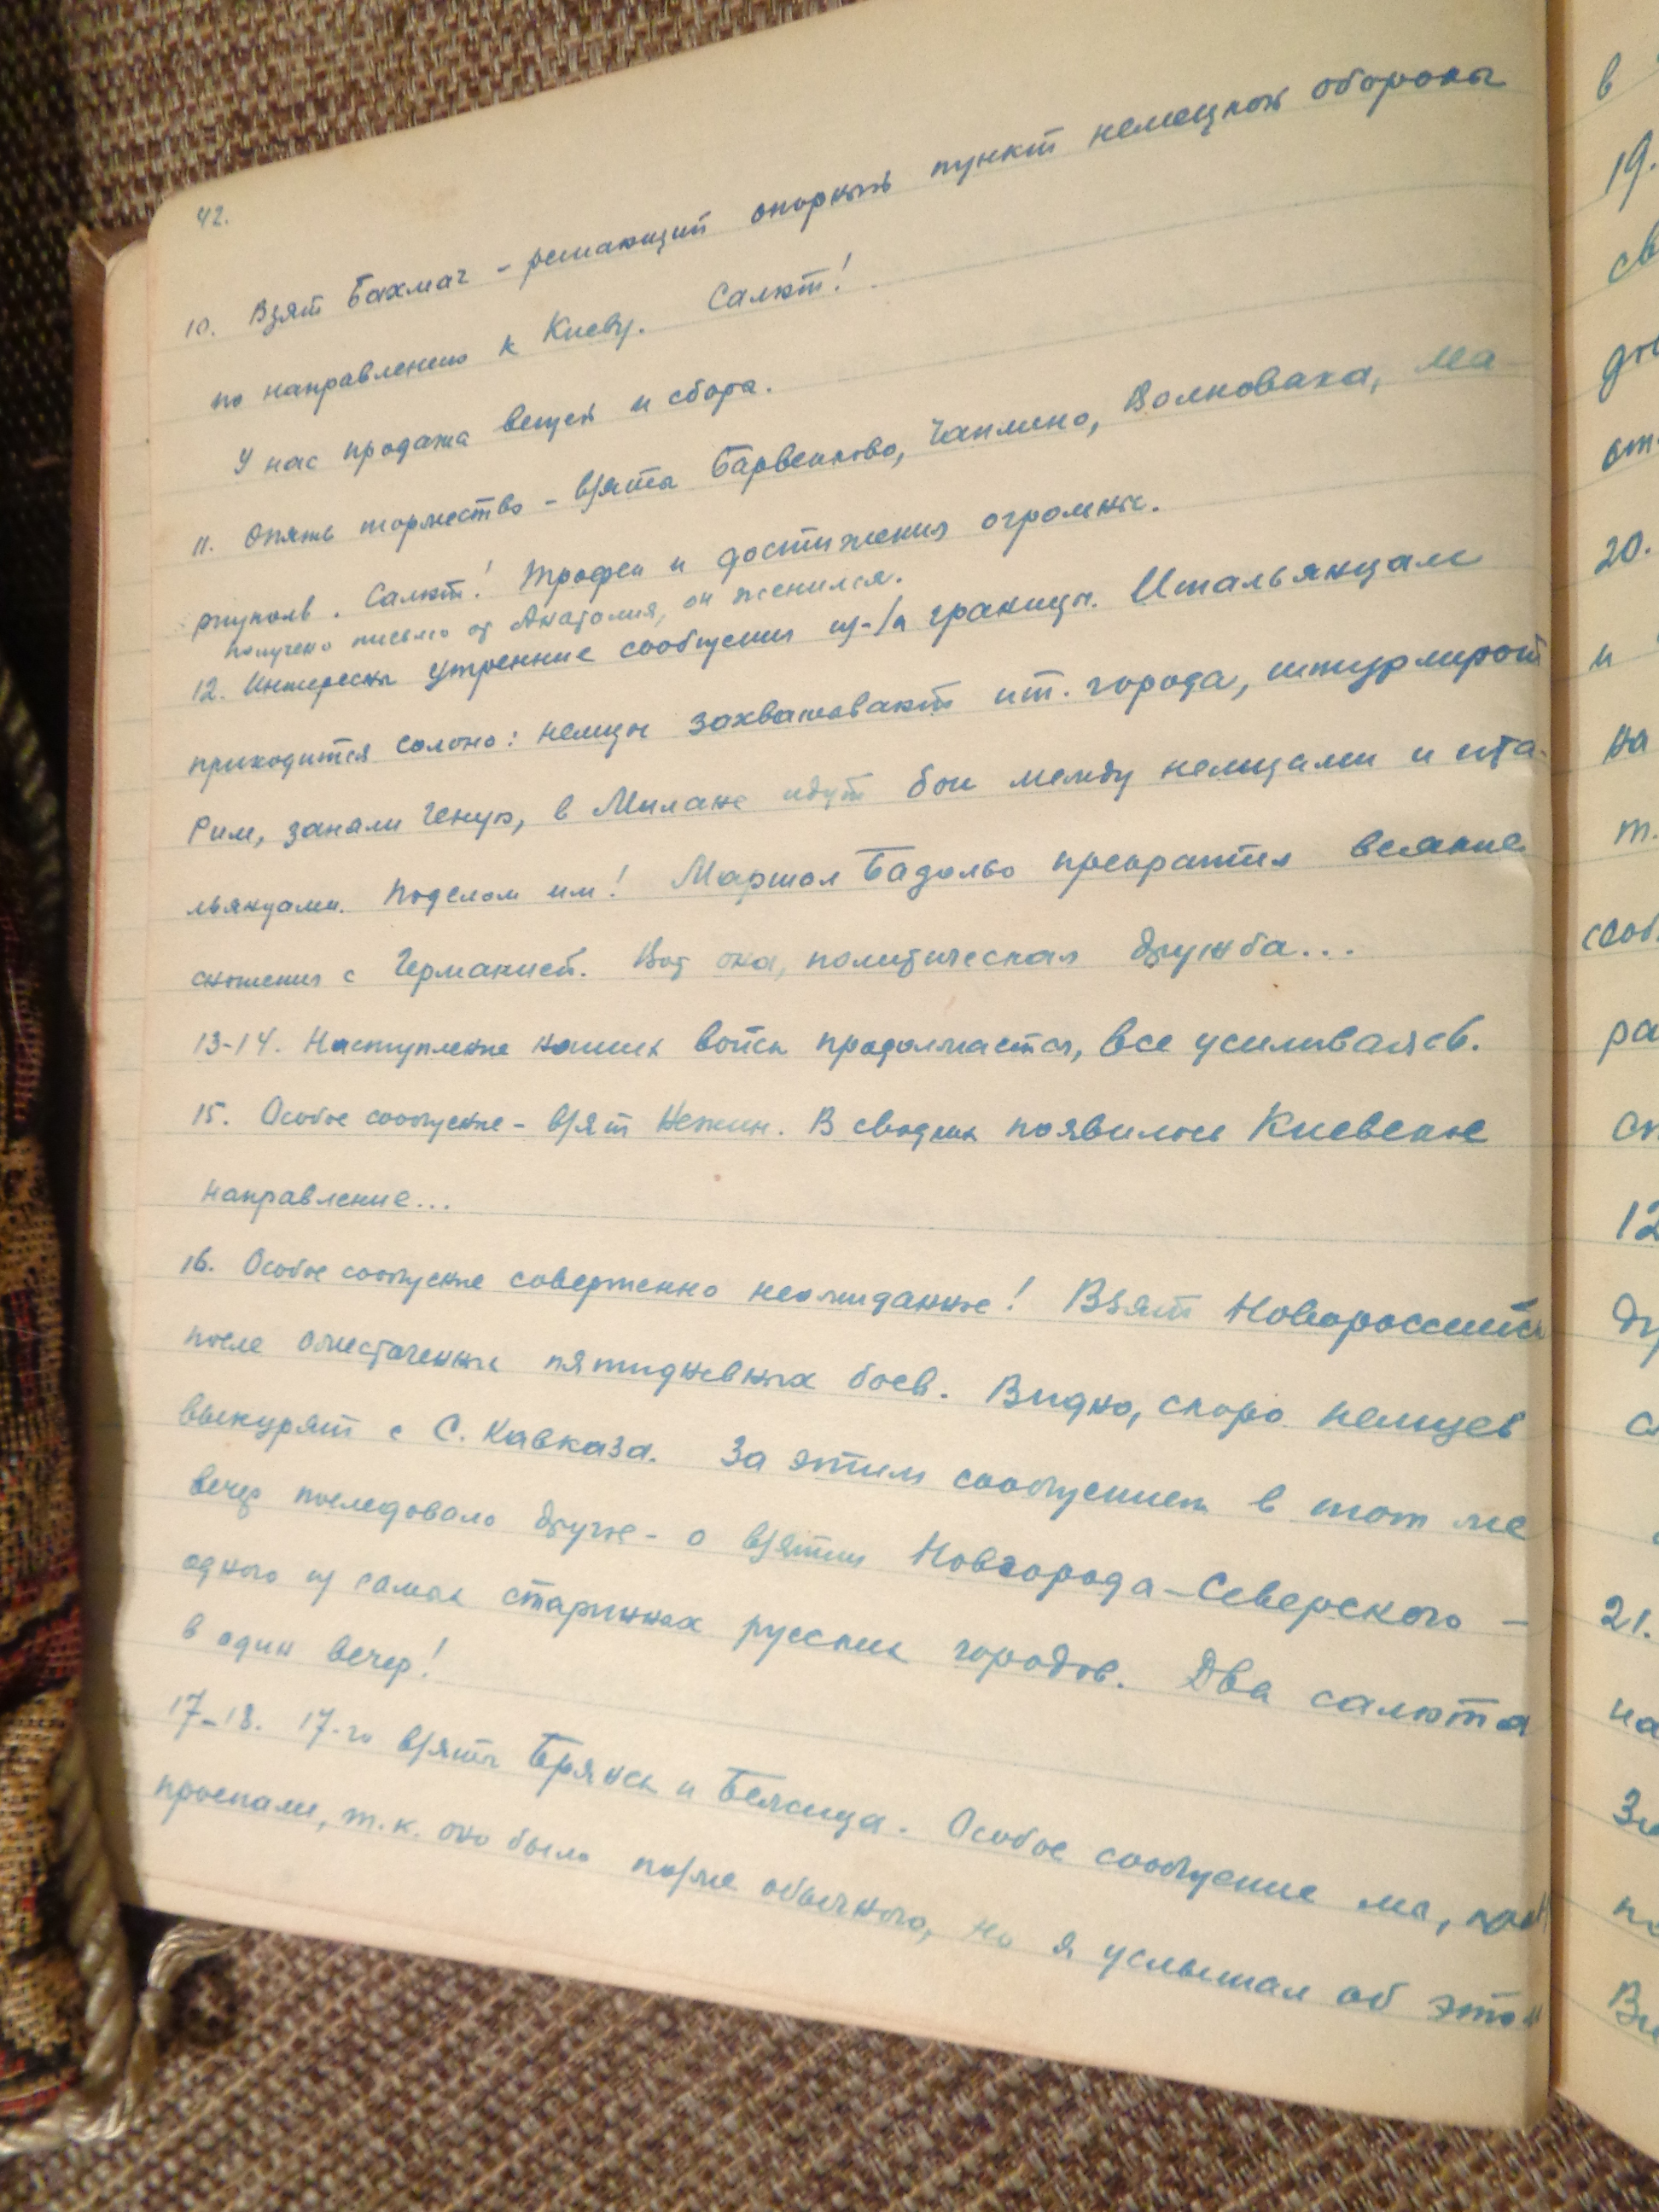 42.
10. Взят Бахмач - решающий опорный пункт немецкой обороны
по направлению к Киеву. Салют!
У нас продажа вещей и сбора.
11. Опять торжество - взяты Барвенково, Чаплино, Волноваха, Ма-
риуполь. Салют! Трофеи и достижения огромны.
Получено письмо от Анатолия, он женился.
12. Интересны утренние сообщения из-за границы. Итальянцам
приходится солоно: немцы захватывают ит. города, штурмиров
Рим, заняли Геную, в Милане идут бои между немцами и ита-
льянцами. Поделом им! Маршал Бадольо прекратил всякие
сношения с Германией. Вот она, политическая дружба...
13-14. Наступление наших войск продолжается, все усиливаясь.
15. Особое сообщение - взят Нежин. В сводках появилось Киевское
направление...
16. Особое сообщение совершенно неожиданное! Взят Новороссийск
после ожесточенных пятидневных боев. Видно, скоро немцев
выкурят с С. Кавказа. За этим сообщением в тот же
вечер последовало другое - о взятии Новгорода-Северского -
одного из самых старинных русских городов. Два салюта
в один вечер!
17-18. 17-го взяты Брянск и Бежица. Особое сообщение мы,
проспали, т.к. оно было позже обычного, но я услышал об этом
в
19.
св
20.
и
на
т.
сооб
ра
12
21.
на